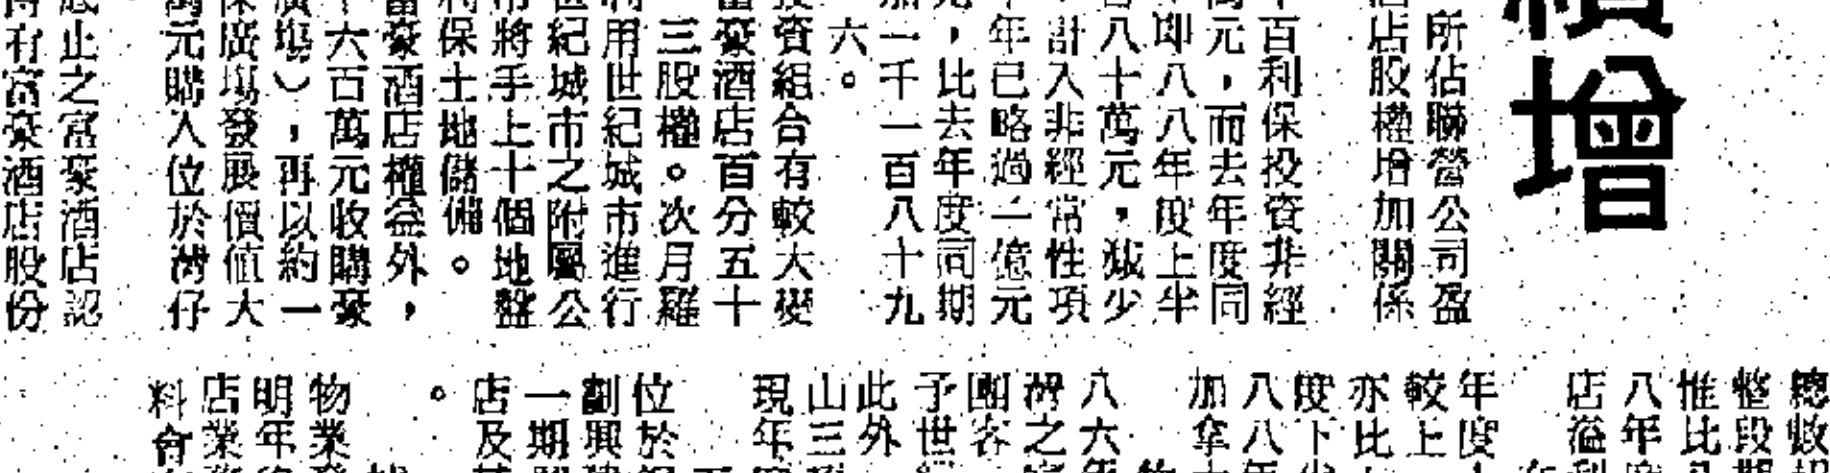 增
所佔聯營公司盈
店股權增加關係
百利保投資非經
元，而去年度同
即八八年度上半
八十萬元，減少
計入非經常性項
年已略過一億元
，比去年度同期
加一千一百八十九
六。
投資組合有較大變
富豪酒店百分五十
三股權。次月羅
利用世紀城市進行
世紀城市之附屬公
將手上十個地盤
利保土地儲備。
富豪酒店權益外，
六百萬元收購豪
廣塲），再以約一
保廣塲發展價值大
萬元購入位於灣仔
止之富豪酒店認
有富豪酒店股份
總收
整段
惟比
八年
店溢
年度
較上
亦比
度下
八八年
加拿
八六年
灣之
團客
予世
此外
山三
現年
位於
劃興建
一期
店及
。
物業
明年
店業
料會